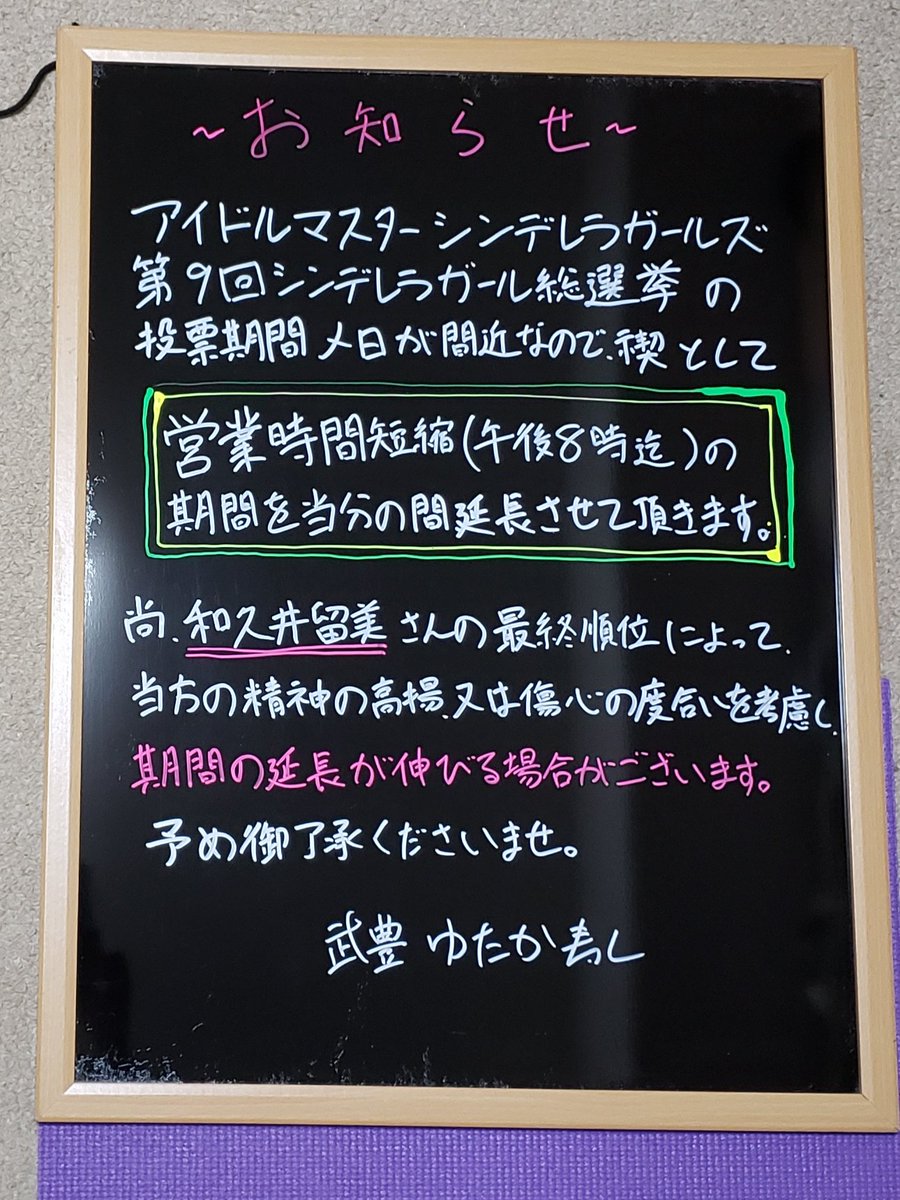 ～お知らせ～
アイドルマスターシンデレラガールズ
第9回シンデレラガール総選挙の
投票期間〆日が間近なので、禊として
営業時間短縮(午後8時迄)の
期間を当分の間延長させて頂きます。
尚、和久井留美さんの最終順位によって、
当方の精神の高揚、又は傷心の度合いを考慮し、
期間の延長が伸びる場合がございます。
予め御了承くださいませ。
武豊 ゆたか寿し